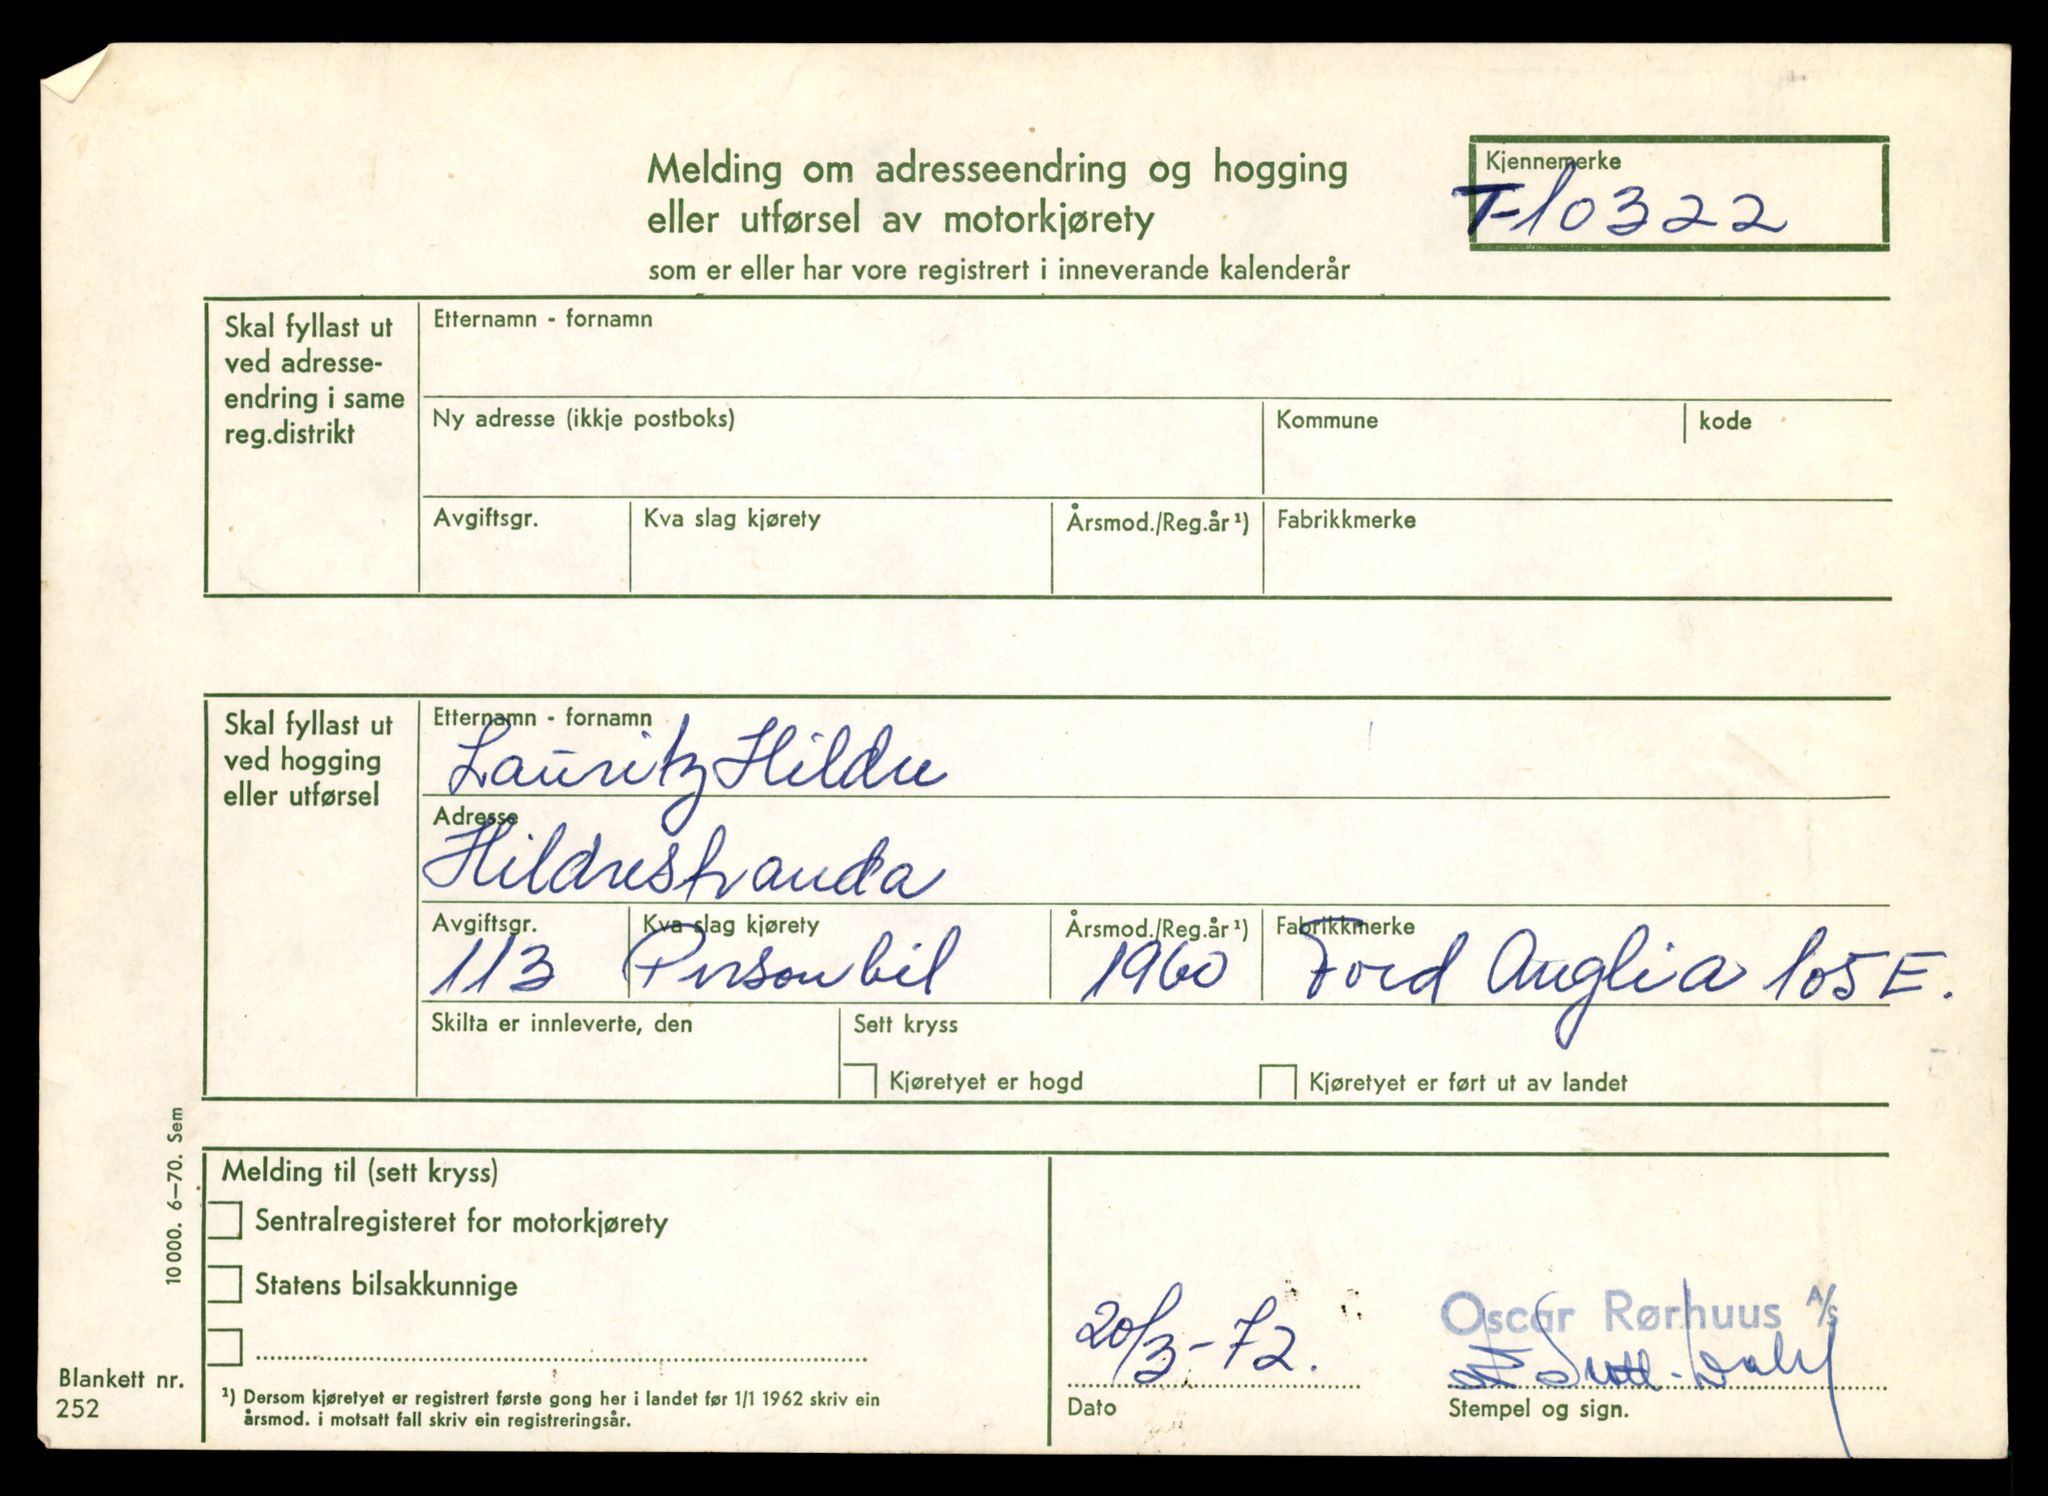 Melding om adresseendring og hogging
eller utførsel av motorkjørety
som er eller har vore registrert i inneverande kalenderår
Kjennemerke
T-10322
Skal fyllast ut
ved adresse-
endring i same
reg.distrikt
Etternamn - fornamn
Ny adresse (ikkje postboks)
Kommune
kode
Avgiftsgr.
Kva slag kjørety
Årsmod./Reg.år ¹)
Fabrikkmerke
Skal fyllast ut
ved hogging
eller utførsel
Etternamn - fornamn
Lauritz Hildre
Adresse
Hildrestranda
Avgiftsgr.
Kva slag kjørety
Årsmod./Reg.år ¹)
Fabrikkmerke
113 Personbil 1960 Ford Anglia 105E.
Skilta er innleverte, den
Sett kryss
Kjøretyet er hogd
Kjøretyet er ført ut av landet
Melding til (sett kryss)
Sentralregisteret for motorkjørety
Statens bilsakkunnige
¹) Dersom kjøretyet er registrert første gong her i landet før 1/1 1962 skriv ein
årsmod. i motsatt fall skriv ein registreringsår.
20/3-72.
Dato
Oscar Rørhuus A/S
Stempel og sign.
10000. 6–70. Sem
Blankett nr.
252